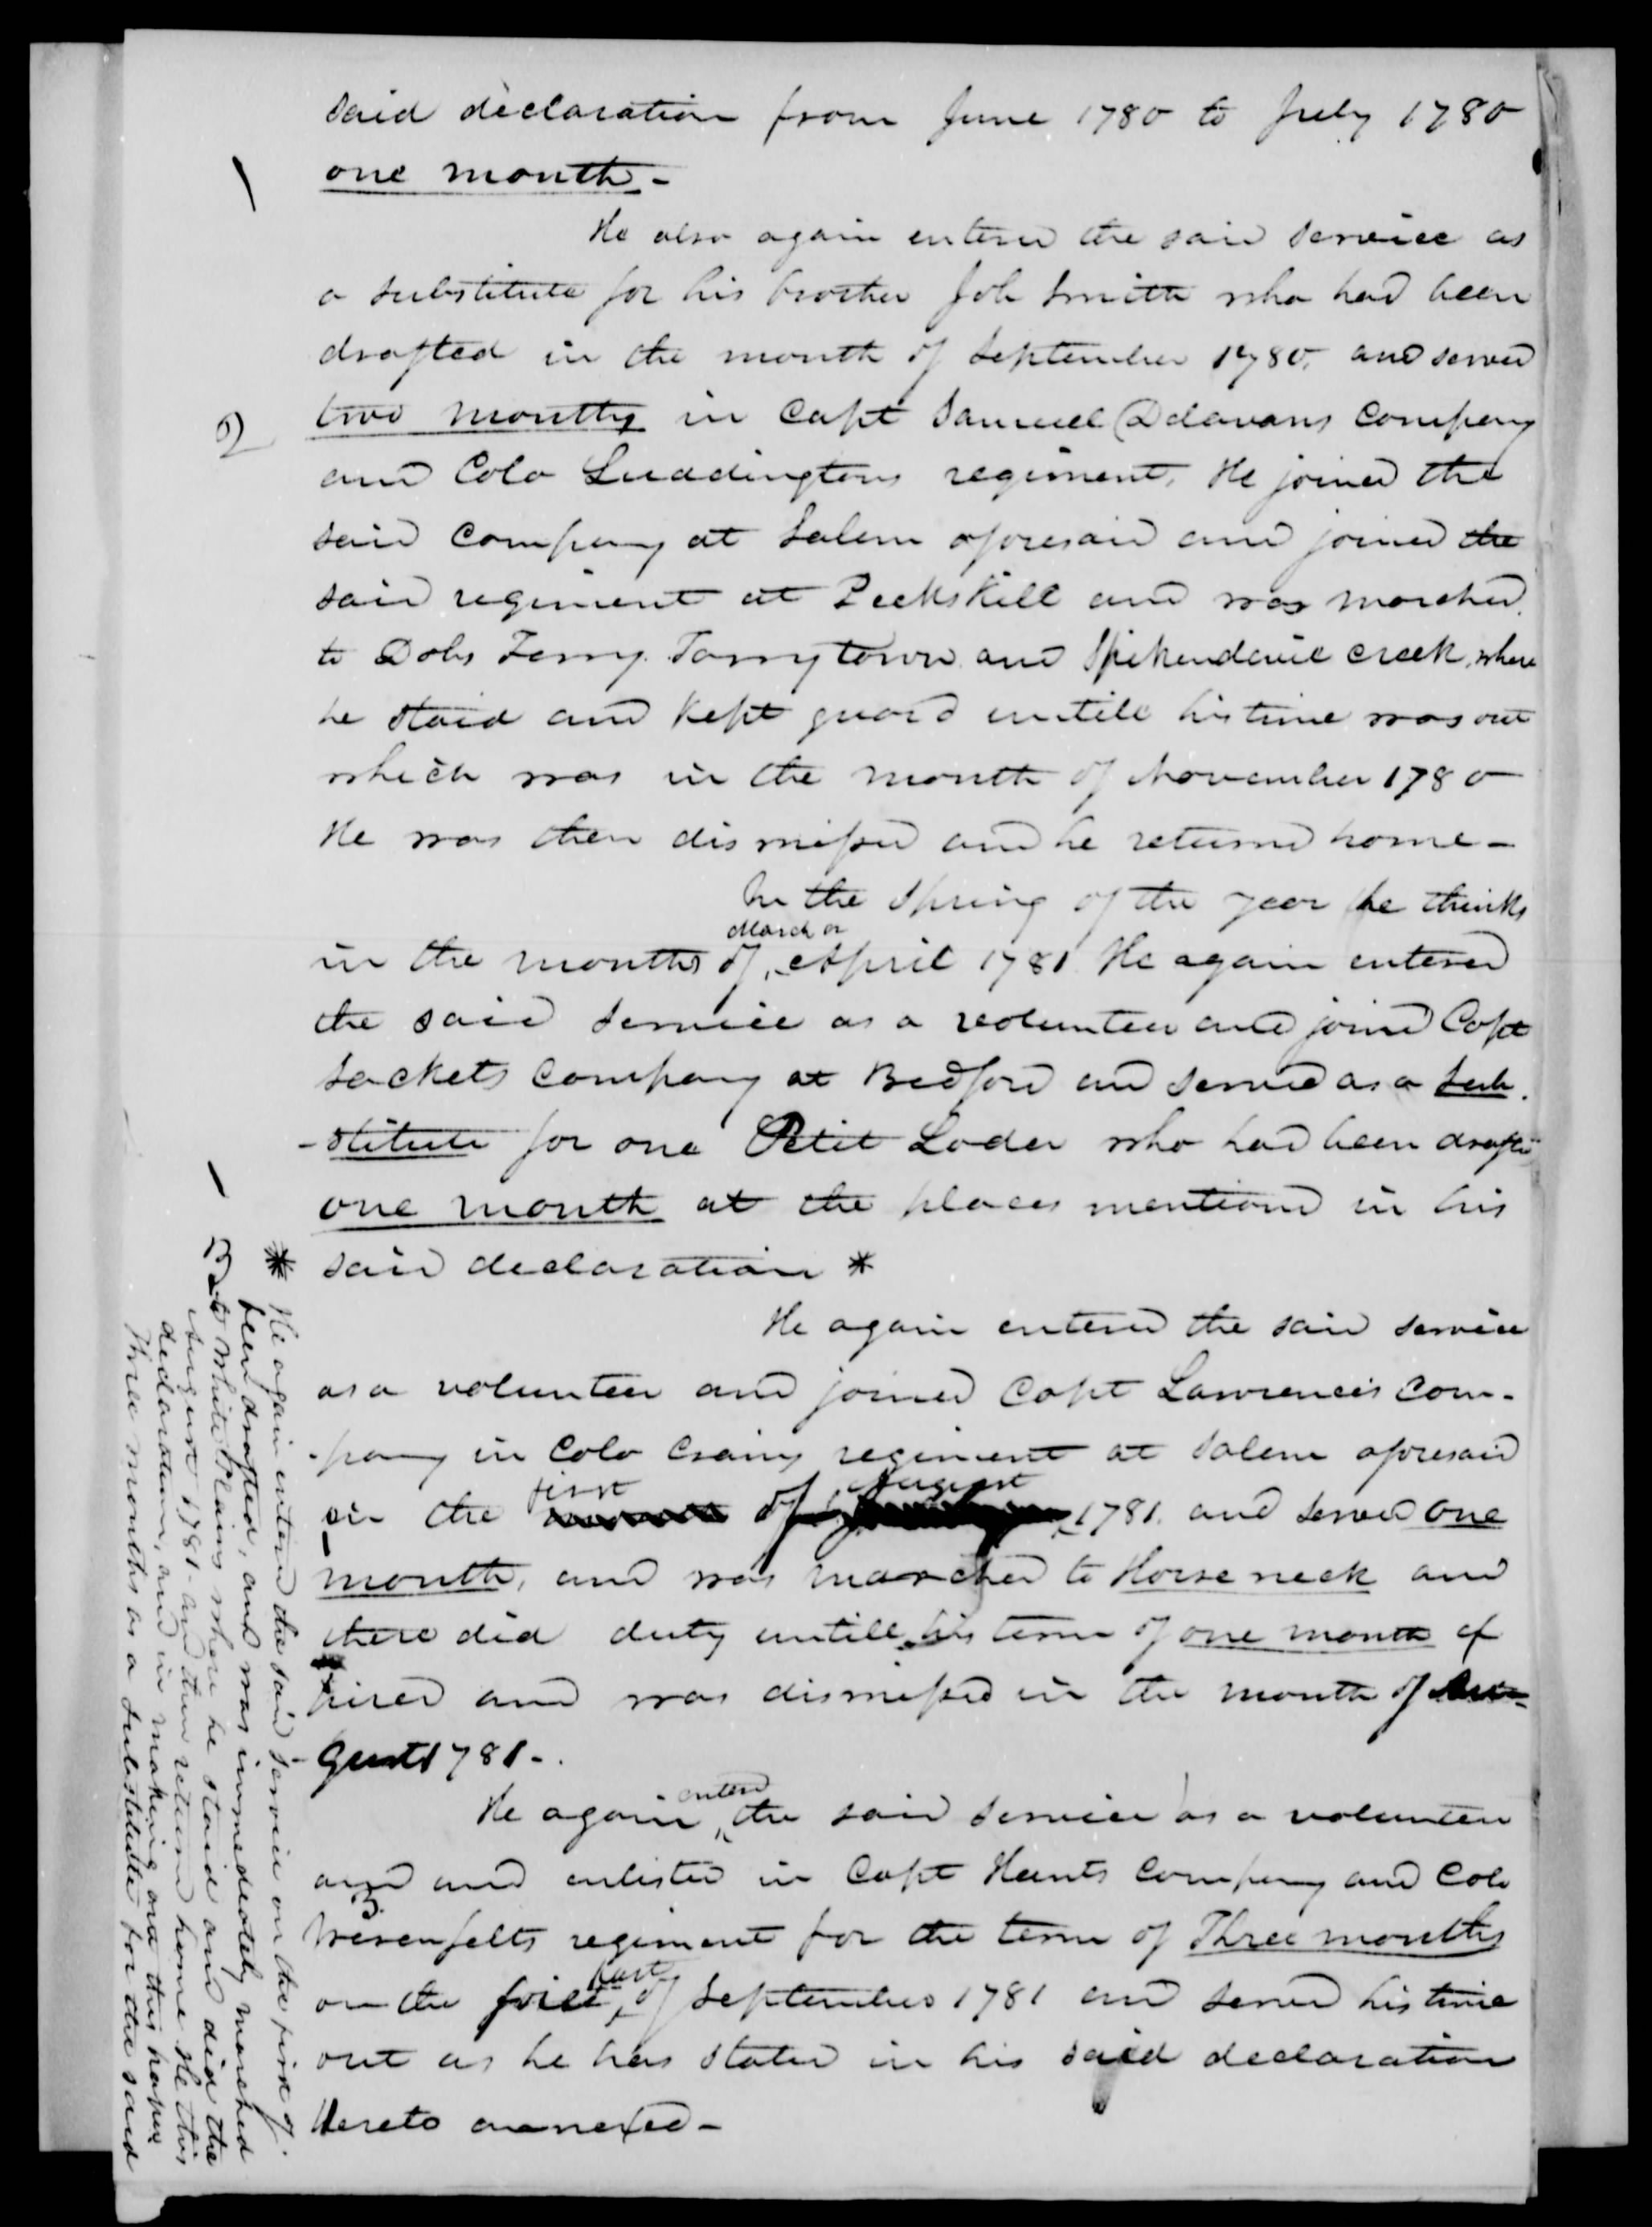 said declaration from June 1780 to July 1780
one month -
He also again entered the said service as
a substitute for his brother Job Smith who had been
drafted in the month of September 1780, and served
2
two months in Capt Samuel Delavans Company
and Colo Luddingtons regiment. He joined the
said company at Salem aforesaid and joined the
said regiment at Peekskill and was marched
to Dobs Ferry. Tarrytown and Spikendevil creek, where
he staid and kept guard untill his time was out
which was in the month of November 1780
He was then dismissed and he returned home -
In the Spring of the year he thinks
March or
in the months of, April 1781 He again entered
the said service as a volunteer and joined Capt
Sackets Company at Bedford and served as a Sub
-stitute for one Petit Loder who had been drafted
one month at the places mentioned in his
said declaration *
He again entered the said service
as a volunteer and joined Capt Lawrences Com-
-pany in Colo Cranes regiment at Salem aforesaid
first August
in the of 1781. and served one
month, and was marched to Horse neck and
there did duty untill his term of one month ex
pired and was dismissed in the month of Au-
-gust 1781 -
entered
He again, the said service as a volunteer
and and enlisted in Capt Hunts Company and Colo
3
Wesenfelts regiment for the term of Three months
part
on the first, of September 1781 and served his time
out as he has stated in his said declaration
hereto annexed -
* He again entered the said service on the first of
been drafted, and was immediately marched
B to White Plains where he staid and did the
August 1781 - and then returned home. He this
declaration, and in making out this paper
Three months as a Substitute for the said